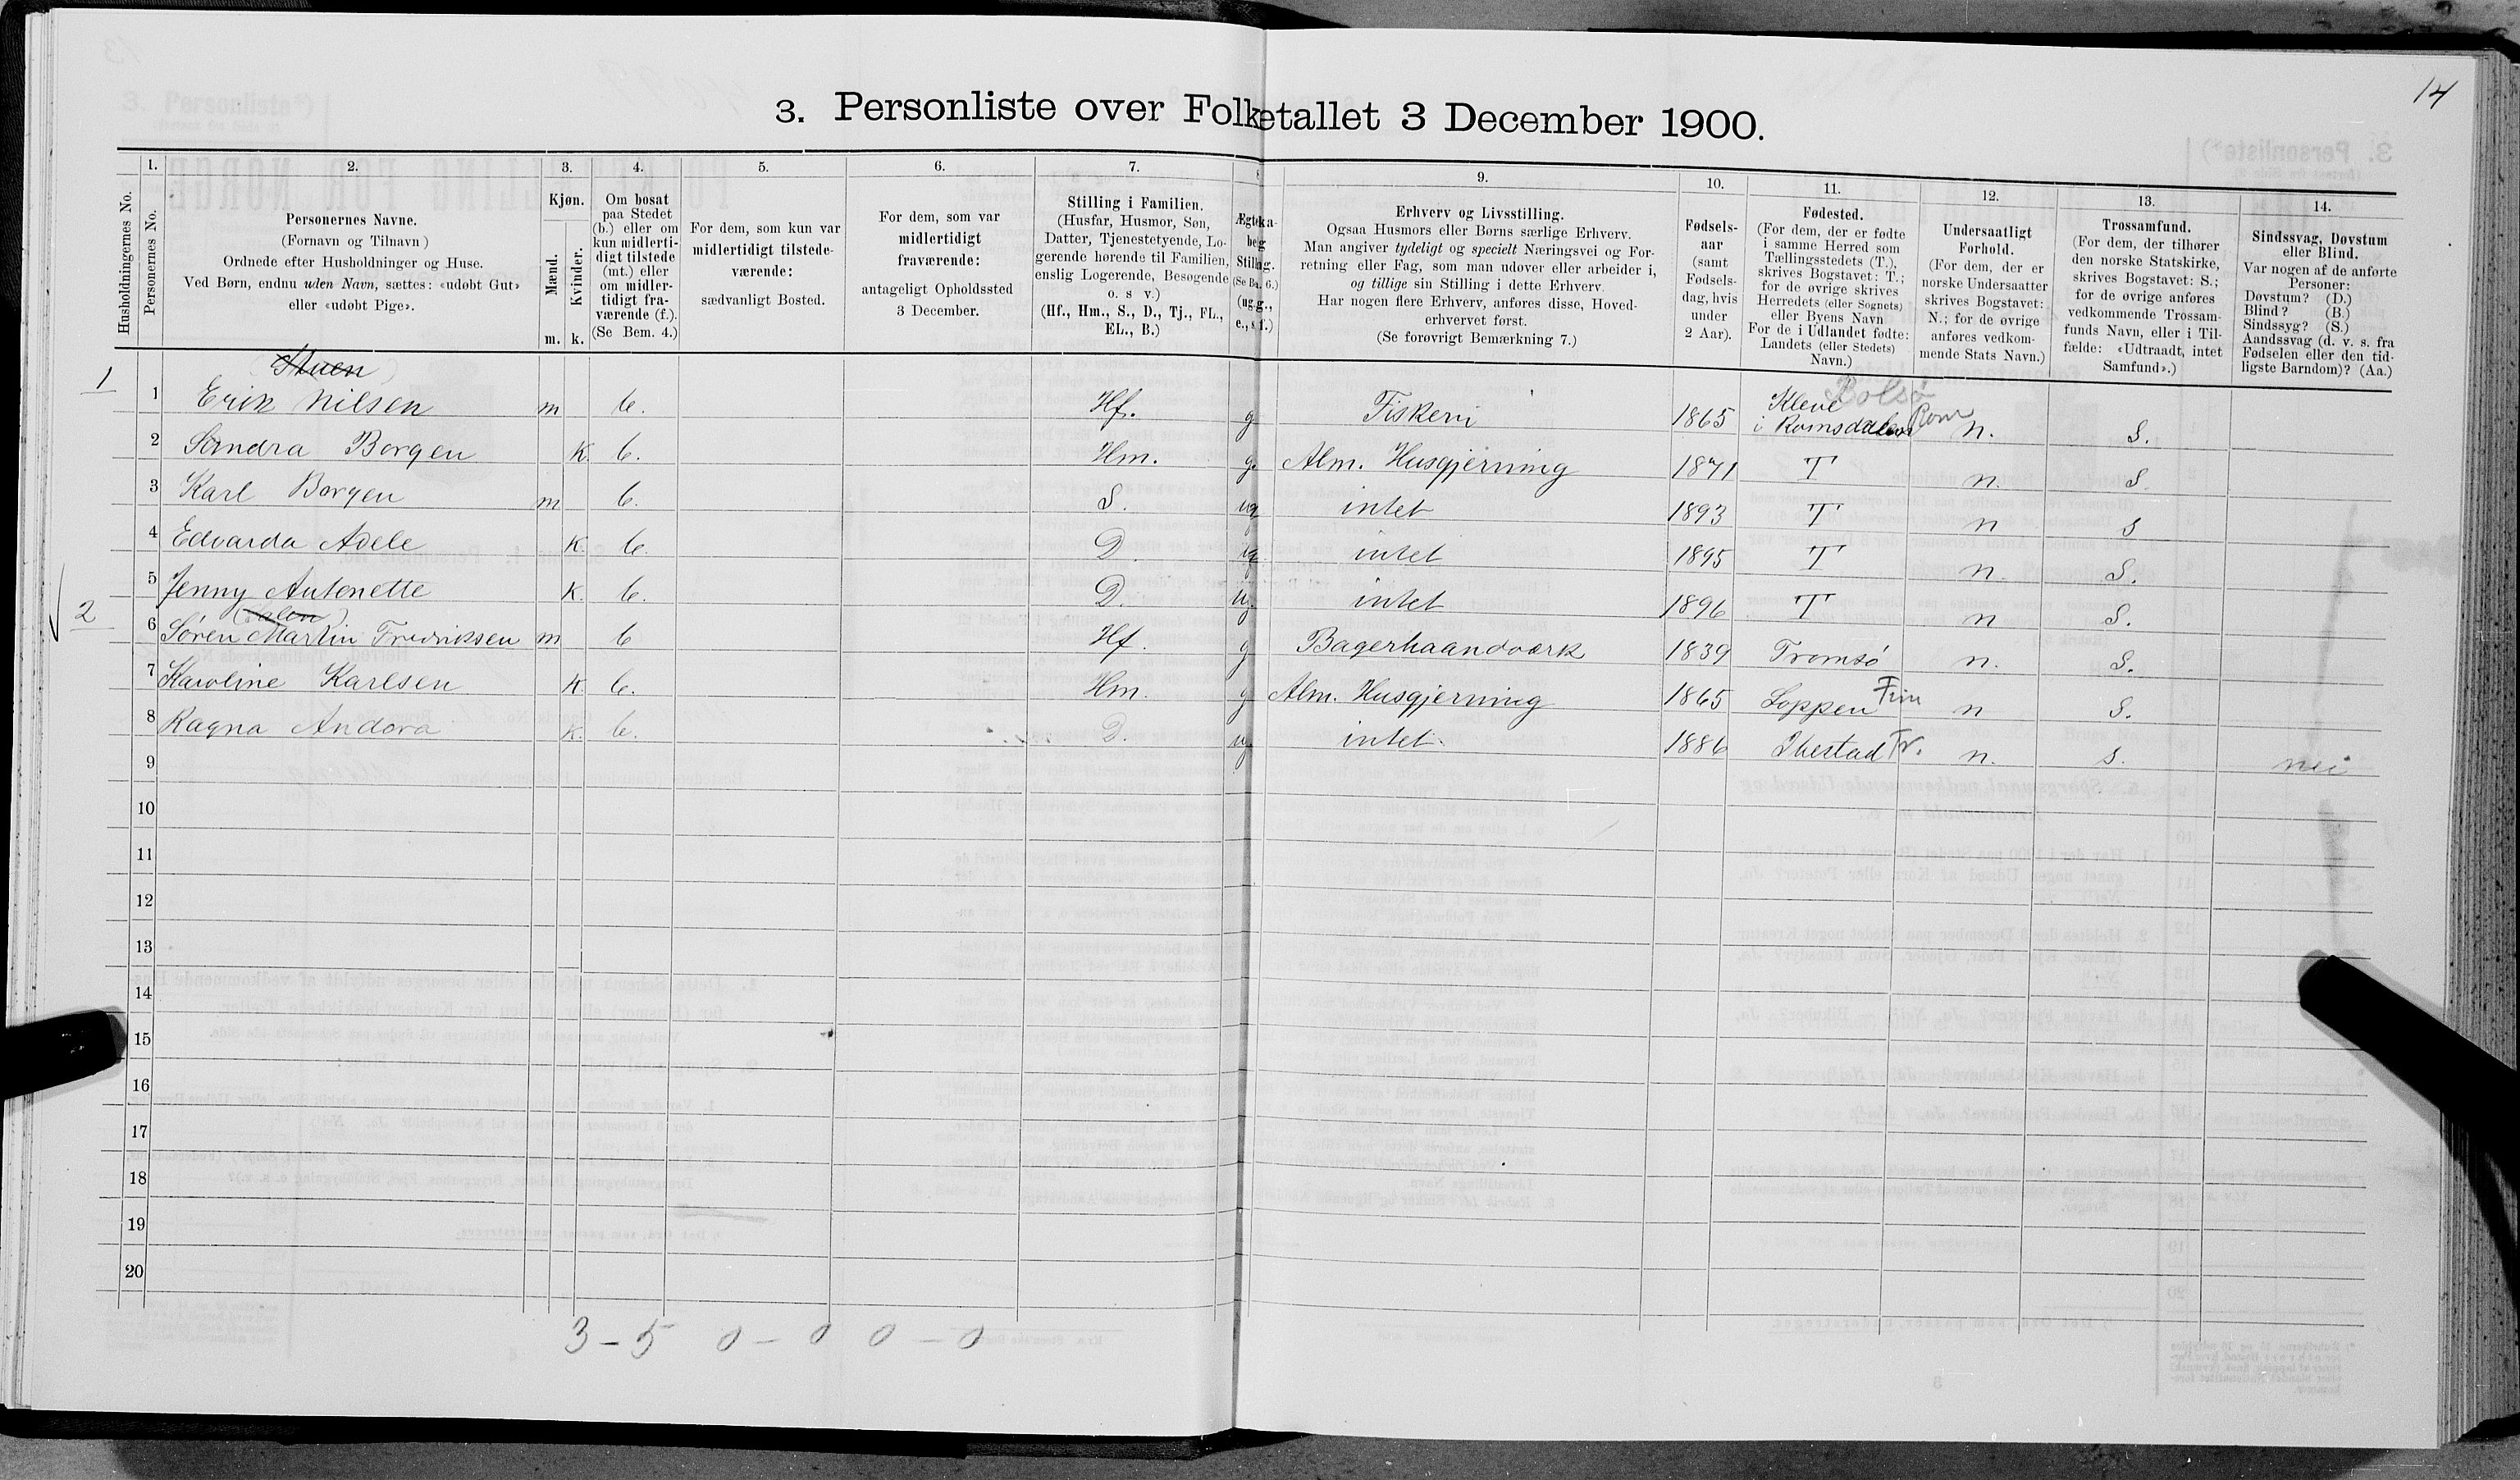 14
3. Personliste over Folketallet 3 December 1900.
Husholdningernes No.
1.
Personernes No.
2.
Personernes Navne.
(Fornavn og Tilnavn)
Ordnede efter Husholdninger og Huse.
Ved Børn, endnu uden Navn, sættes: «udøbt Gut»
eller «udøbt Pige».
3.
Kjøn.
Mænd.
Kvinder.
m. k.
4.
Om bosat
paa Stedet
(b.) eller om
kun midlerti-
digt tilstede
(mt.) eller
om midler-
tidigt fra-
værende (f.).
(Se Bem. 4.)
5.
For dem, som kun var
midlertidigt tilstede-
værende:
sædvanligt Bosted.
6.
For dem, som var
midlertidigt
fraværende:
antageligt Opholdssted
3 December.
7.
Stilling i Familien.
(Husfar, Husmor, Søn,
Datter, Tjenestetyende, Lo-
gerende hørende til Familien,
enslig Logerende, Besøgende
o. s v.)
(Hf., Hm., S., D., Tj., FL.,
EL., B.)
9.
Erhverv og Livsstilling.
Ogsaa Husmors eller Børns særlige Erhverv.
Man angiver tydeligt og specielt Næringsvei og For-
retning eller Fag, som man udøver eller arbeider i,
og tillige sin Stilling i dette Erhverv.
Har nogen flere Erhverv, anføres disse, Hoved-
erhvervet først.
(Se forøvrigt Bemærkning 7.)
10.
Fødsels-
aar
(samt
Fødsels-
dag, hvis
under
2 Aar).
11.
Fødested.
(For dem, der er fødte
i samme Herred som
Tællingsstedets (T.),
skrives Bogstavet: T.;
for de øvrige skrives
Herredets (eller Sognets)
eller Byens Navn
For de i Udlandet fødte:
Landets (eller Stedets)
Navn.)
12.
Undersaatligt
Forhold.
(For dem, der er
norske Undersaatter
skrives Bogstavet:
N.; for de øvrige
anføres vedkom-
mende Stats Navn.)
13.
Trossamfund.
(For dem, der tilhører
den norske Statskirke,
skrives Bogstavet: S.;
for de øvrige anføres
vedkommende Trossam-
funds Navn, eller i Til-
fælde: «Udtraadt, intet
Samfund».)
14.
Sindssvag, Døvstum
eller Blind.
Var nogen af de anførte
Personer:
Døvstum? (D.)
Blind? (B.)
Sindssyg? (S.)
Aandssvag (d. v. s. fra
Fødselen eller den tid-
ligste Barndom)? (Aa.)
Bolsø
1 1 Erik Nilsen m b. Hf. g Fiskeri 1865 Kleve i Romsdalen Rom n. S.
2 Sandra Borgen K. b. Hm. g. Alm. Husgjerning 1871 T n. S.
3 Karl Borgen m b. S. ug intet 1893 T n S
4 Edvarda Adele K. b. D. ug intet 1895 T n. S.
5 Jenny Antonette K. b. D. ug. intet 1896 T n S.
2 6 Søren Martin Fredriksen m b Hf. g Bagerhaandværk 1839 Tromsø n. S.
7 Karoline Karlsen K b. Hm. g Alm. Husgjerning 1865 Loppen Fin n S.
8 Ragna Andora K. b. D. ug. intet. 1886 Ibestad Tr. n. S.
9 nei
10
11
12
13
14
15
16
17
18
19
20
3 – 5 0 – 0 0 – 0